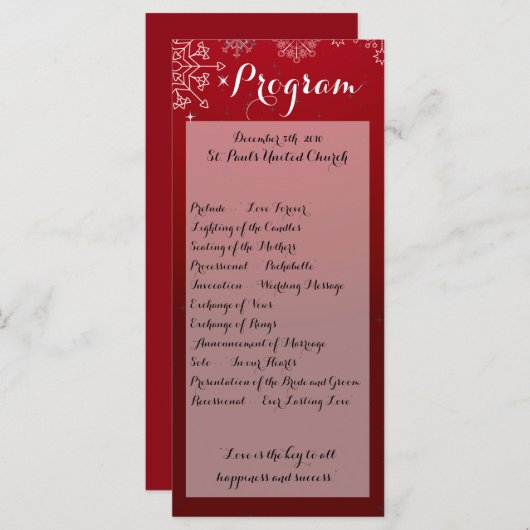 Program
December 5th, 2010
St. Paul's United Church
Prelude . . . "Love Forever"
Lighting of the Candles
Seating of the Mothers
Processional . . . "Pachabelle"
Invocation . . . Wedding Message
Exchange of Vows
Exchange of Rings
Announcement of Marriage
Solo . . . "In our Hearts"
Presentation of the Bride and Groom
Recessional . . . "Ever Lasting Love"
"Love is the key to all
happiness and success."